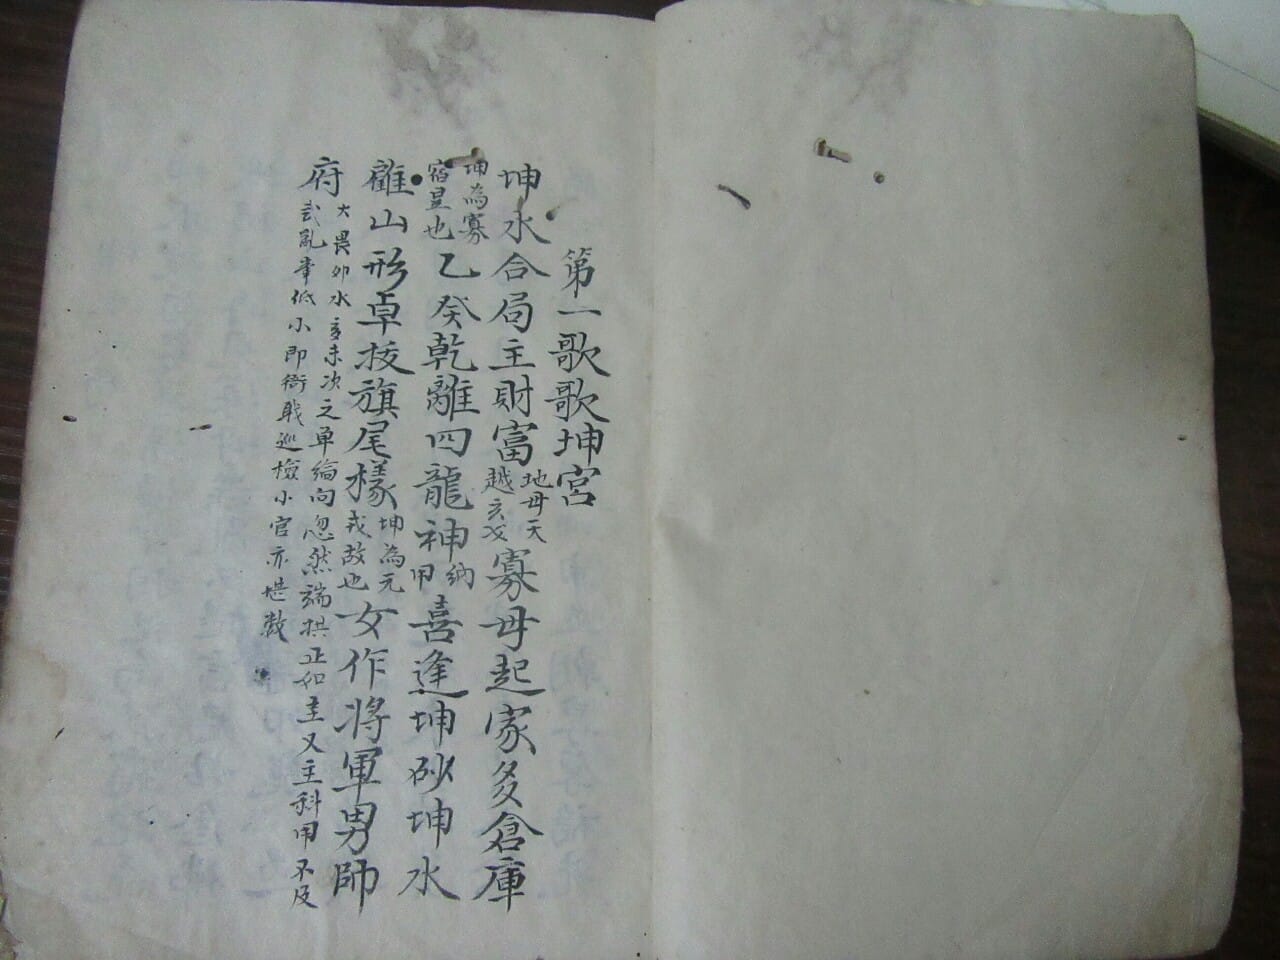 第一歌歌坤宮
坤水合局主財富地母天越亥父寡母起家多倉庫
坤為寡宿星也乙癸乾離四龍神納甲喜逢坤砂坤水
離山形卓拔旗尾樣坤為元戎故也女作將軍男帥
府大畏卯水亥未次之單綸向忽然端拱正如圭又主科甲不及
武亂幸低小即衙戢巡檢小官亦堪數